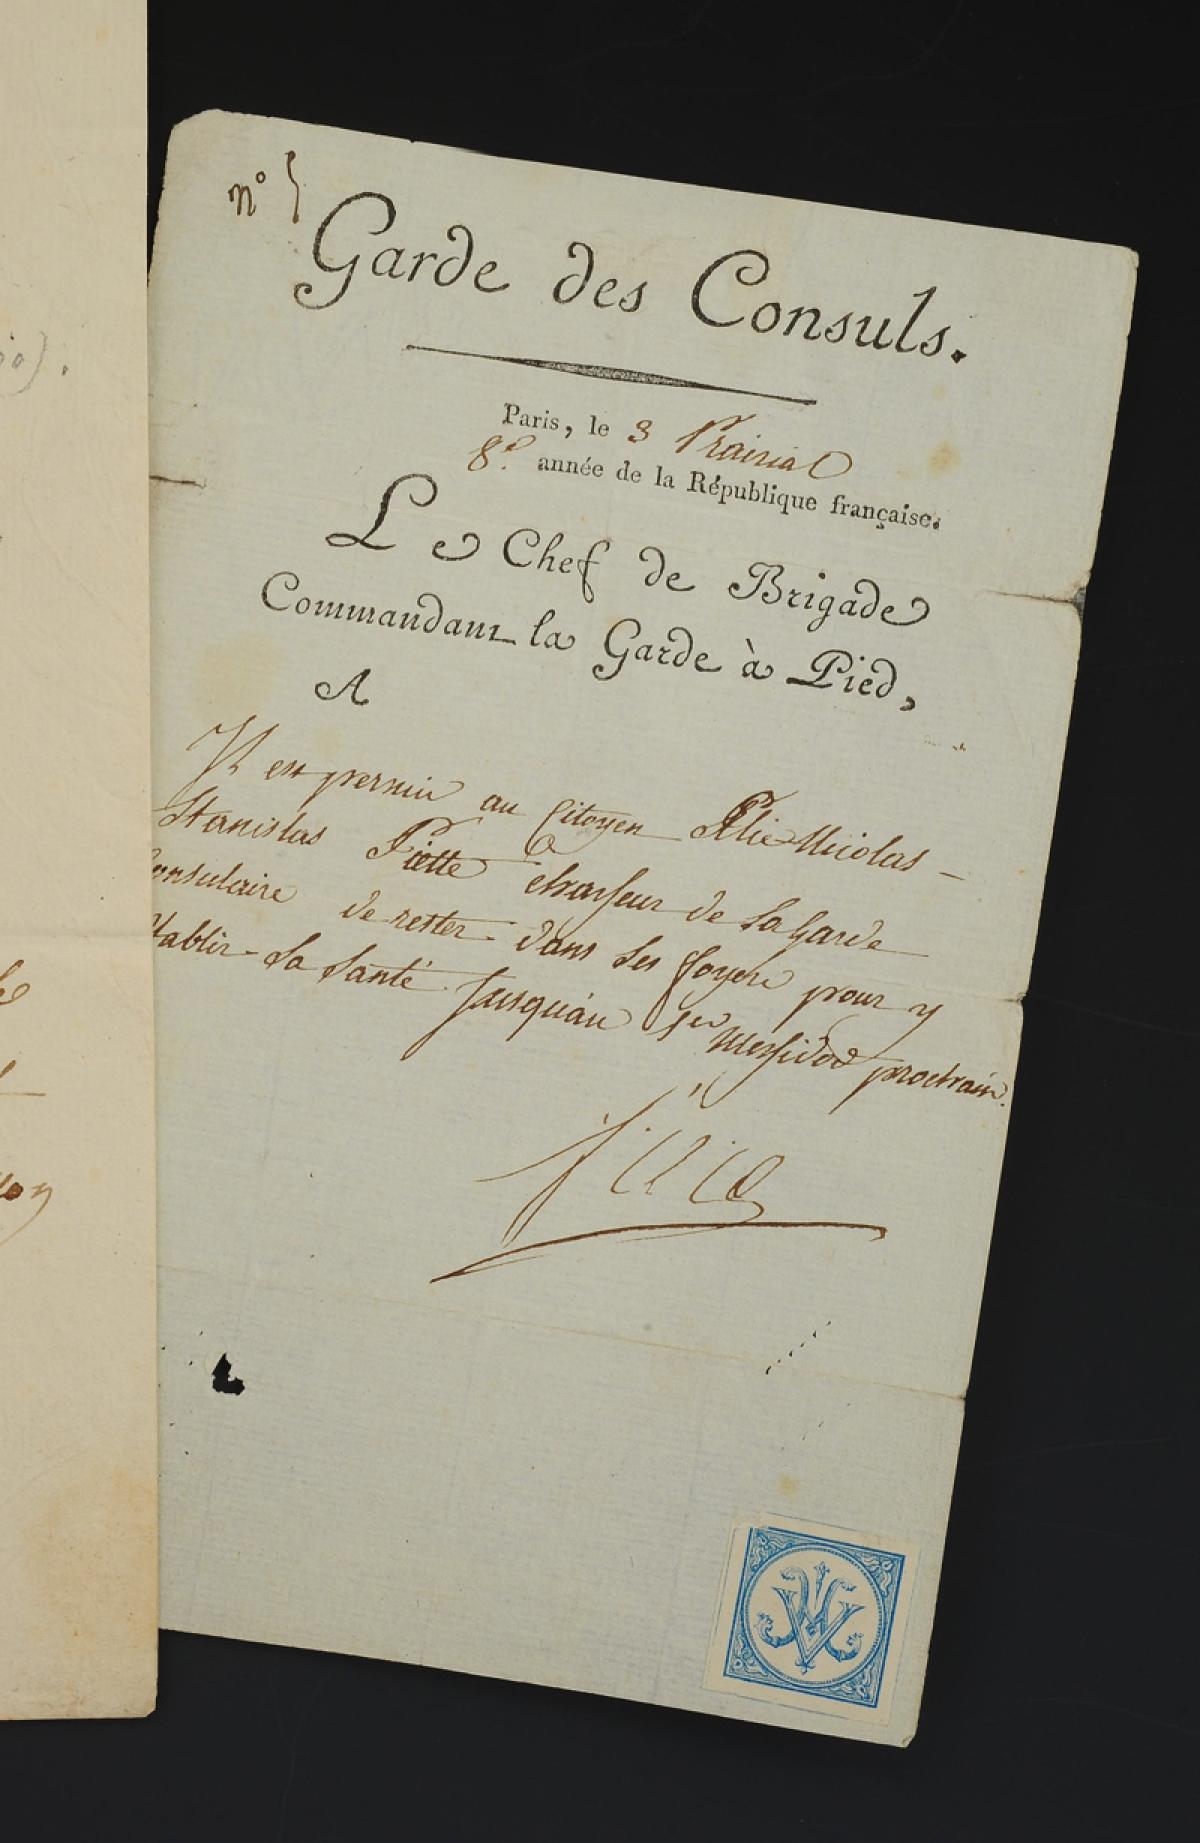 n° 5
Garde des Consuls.
Paris, le 3 Prairial
8e. année de la République française.
Le Chef de Brigade
Commandant la Garde à Pied,
A
Il est permis au Citoyen Elie Nicolas
Stanislas Piette chasseur de la Garde
onsulaire de rester dans ses foyers pour y
établir sa santé jusqu'au 1er Messidor prochain.